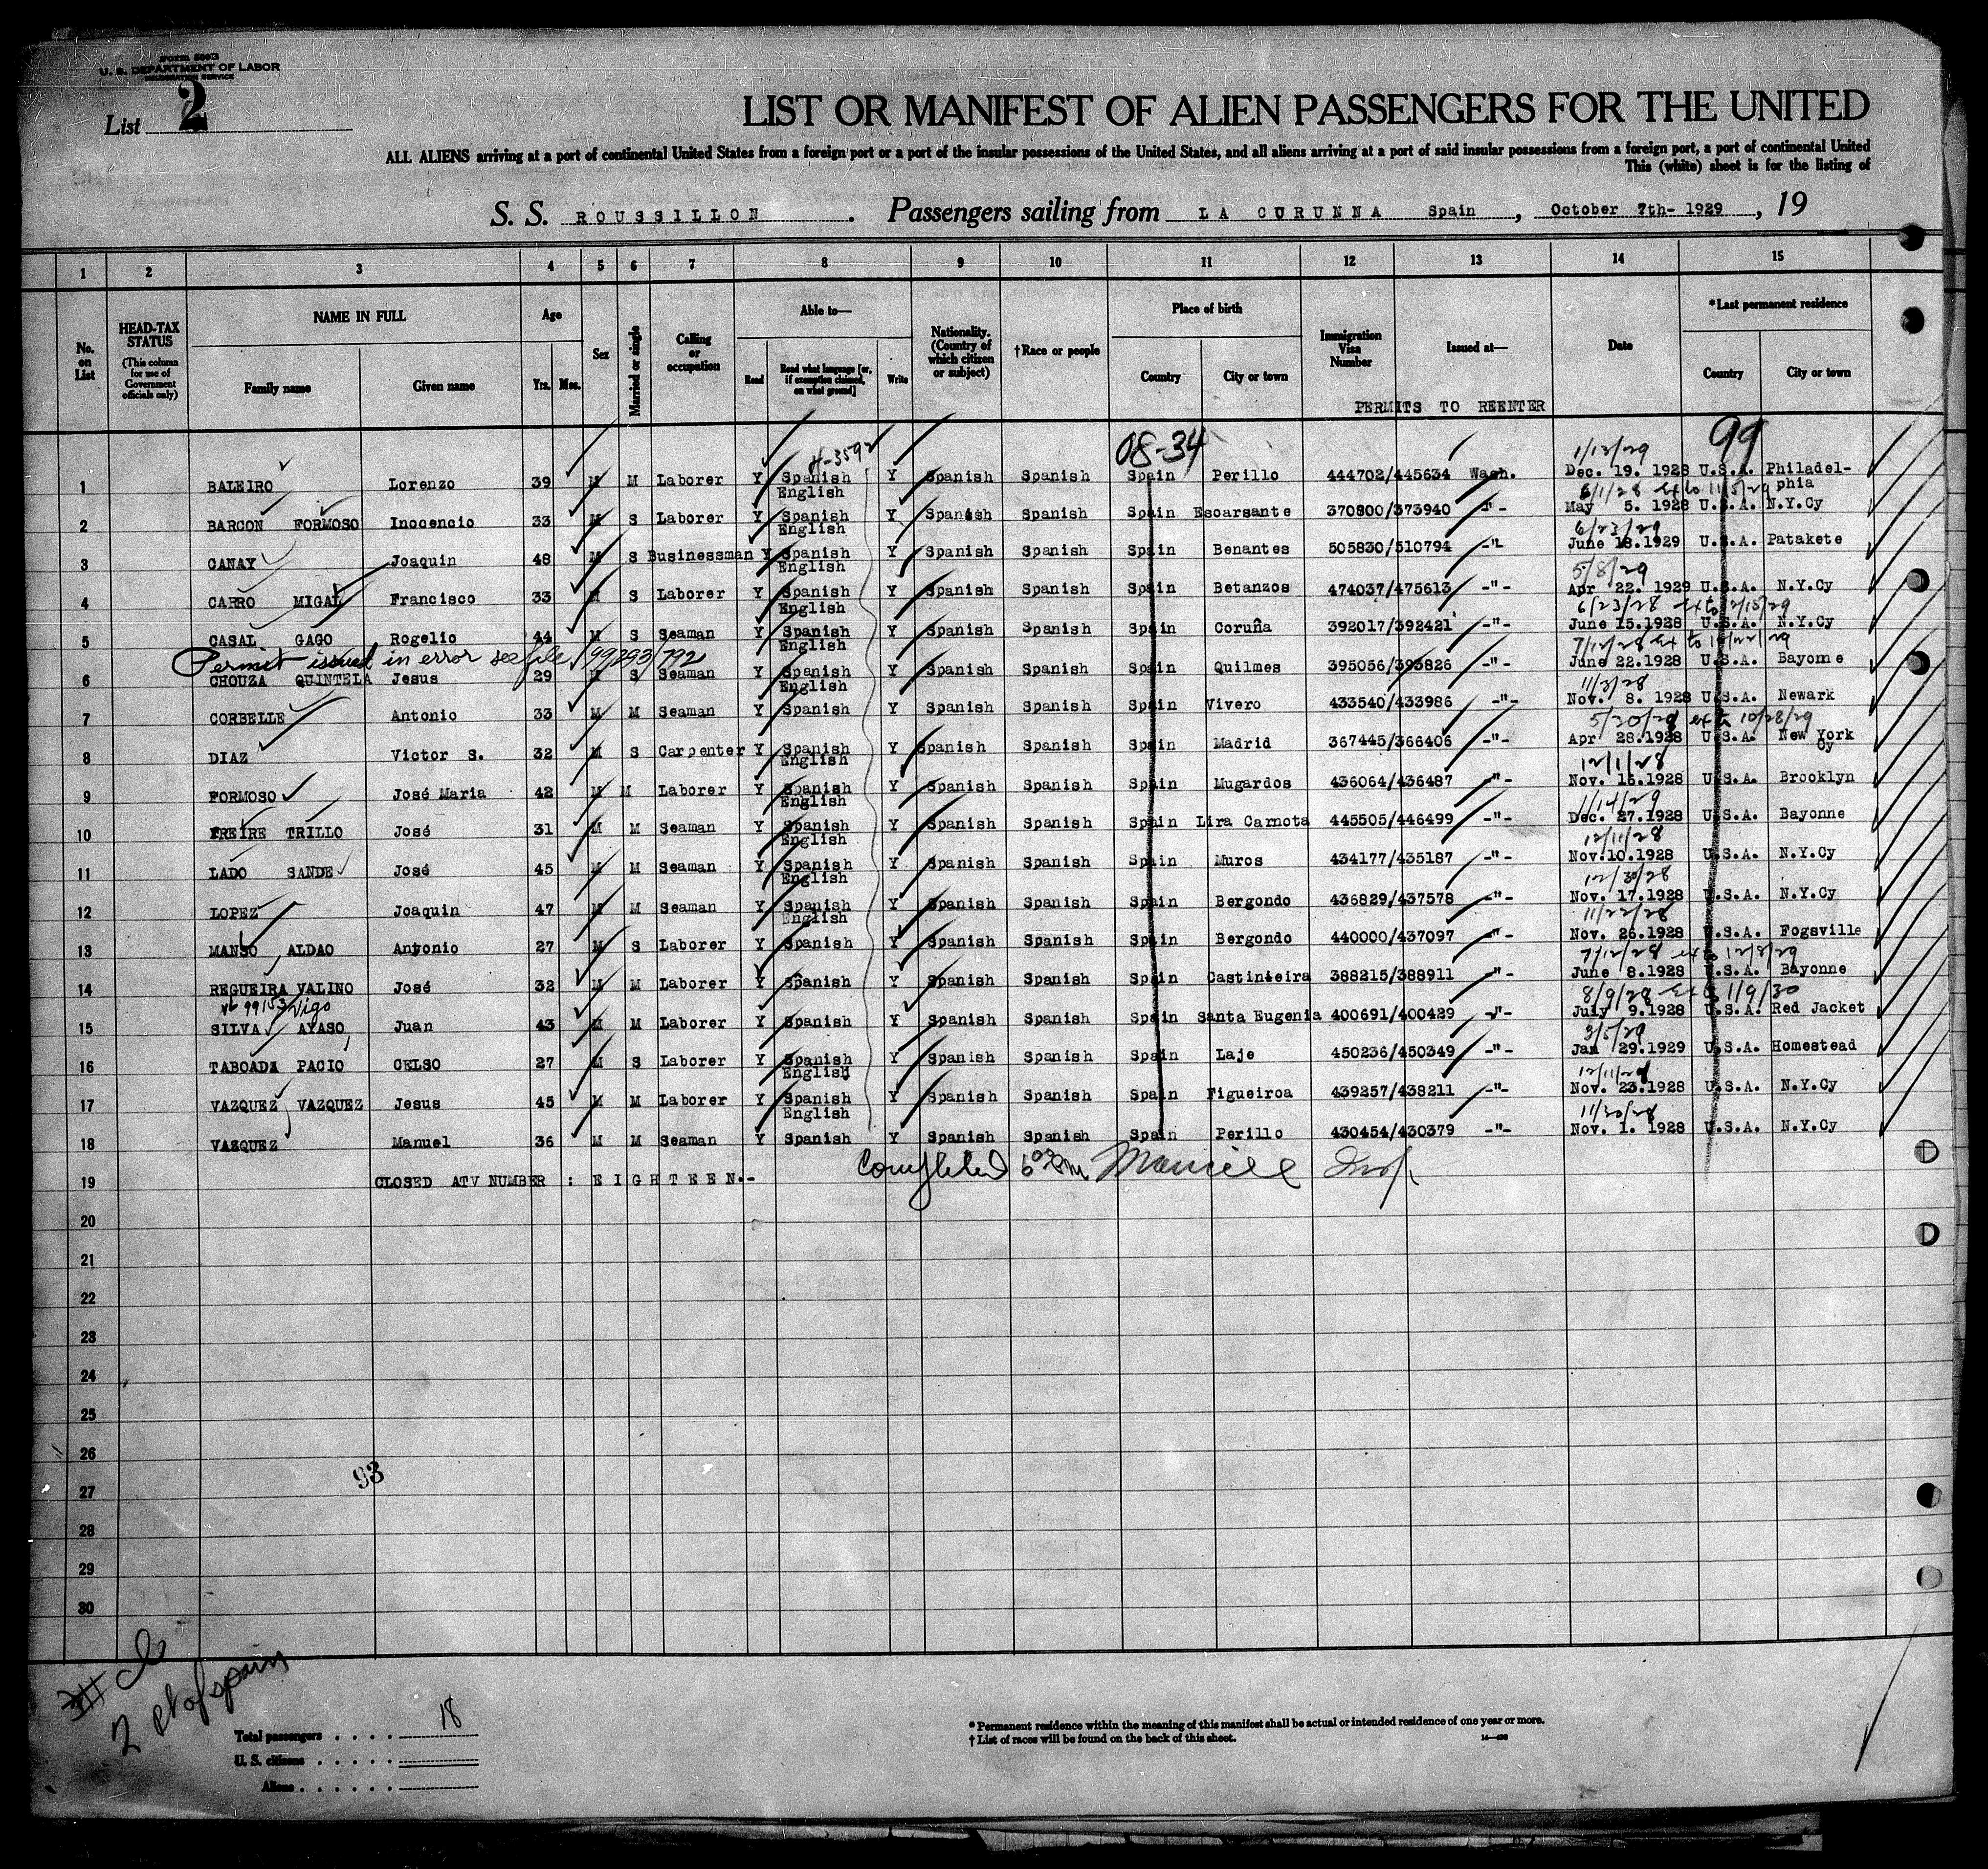 FORM 500B
U. S. DEPARTMENT OF LABOR
IMMIGRATION SERVICE
List 2
LIST OR MANIFEST OF ALIEN PASSENGERS FOR THE UNITED
ALL ALIENS arriving at a port of continental United States from a foreign port or a port of the insular possessions of the United States, and all aliens arriving at a port of said insular possessions from a foreign port, a port of continental United
This (white) sheet is for the listing of
S. S. ROUSSILLON . Passengers sailing from LA CURUNNA Spain , October 7th- 1929 , 19
1 2 3 4 5 6 7 8 9 10 11 12 13 14 15
No. on List
HEAD-TAX STATUS (This column for use of Government officials only)
NAME IN FULL Family name Given name
Age Yrs. Mos.
Sex
Married or single
Calling or occupation
Able to— Read Read what language [or, if exemption claimed, on what ground] Write
Nationality. (Country of which citizen or subject)
†Race or people
Place of birth Country City or town
Immigration Visa Number
Issued at—
Date
*Last permanent residence Country City or town
PERMITS TO REENTER
H-3592 08-34 1/13/29 99
1 BALEIRO Lorenzo 39 M M Laborer Y Spanish English Y Spanish Spanish Spain Perillo 444702/445634 Wash. Dec. 19. 1928 U.S.A. Philadel-phia
6/1/28 ext to 11/5/29
2 BARCON FORMOSO Inocencio 33 M S Laborer Y Spanish English Y Spanish Spanish Spain Escarsante 370800/373940 -"- May 5. 1928 U.S.A. N.Y.Cy
6/23/29
3 CANAY Joaquin 48 M S Businessman Y Spanish English Y Spanish Spanish Spain Benantes 505830/510794 -"- June 18.1929 U.S.A. Patakete
5/8/29
4 CARRO MIGAL Francisco 33 M S Laborer Y Spanish English Y Spanish Spanish Spain Betanzos 474037/475613 -"- Apr 22. 1929 U.S.A. N.Y.Cy
6/23/28 ext to 12/15/29
5 CASAL GAGO Rogelio 44 M S Seaman Y Spanish English Y Spanish Spanish Spain Coruña 392017/392421 -"- June 15.1928 U.S.A. N.Y.Cy
Permit issued in error see file 99293/792 7/12/28 ext to 12/22/29
6 CHOUZA QUINTELA Jesus 29 M S Seaman Y Spanish English Y Spanish Spanish Spain Quilmes 395056/395826 -"- June 22.1928 U.S.A. Bayonne
11/3/28
7 CORBELLE Antonio 33 M M Seaman Y Spanish Y Spanish Spanish Spain Vivero 433540/433986 -"- Nov. 8. 1928 U.S.A. Newark
5/30/28 ext to 10/28/29
8 DIAZ Victor S. 32 M S Carpenter Y Spanish English Y Spanish Spanish Spain Madrid 367445/366406 -"- Apr 28.1928 U.S.A. New York Cy
12/1/28
9 FORMOSO José Maria 42 M M Laborer Y Spanish English Y Spanish Spanish Spain Mugardos 436064/436487 -"- Nov. 16.1928 U.S.A. Brooklyn
1/14/29
10 FREIRE TRILLO José 31 M M Seaman Y Spanish English Y Spanish Spanish Spain Lira Carnota 445505/446499 -"- Dec. 27.1928 U.S.A. Bayonne
12/11/28
11 LADO SANDE José 45 M M Seaman Y Spanish English Y Spanish Spanish Spain Muros 434177/435187 -"- Nov.10.1928 U.S.A. N.Y.Cy
12/30/28
12 LOPEZ Joaquin 47 M M Seaman Y Spanish English Y Spanish Spanish Spain Bergondo 436829/437578 -"- Nov. 17.1928 U.S.A. N.Y.Cy
11/22/28
13 MANSO ALDAO Antonio 27 M S Laborer Y Spanish Y Spanish Spanish Spain Bergondo 440000/437097 -"- Nov. 26.1928 U.S.A. Fogsville
7/12/28 ext to 12/8/29
14 REGUEIRA VALINO José 32 M M Laborer Y Spanish Y Spanish Spanish Spain Castinieira 388215/388911 -"- June 8.1928 U.S.A. Bayonne
99153 Vigo 8/9/28 Ext to 1/9/30
15 SILVA AYASO Juan 43 M M Laborer Y Spanish Y Spanish Spanish Spain Santa Eugenia 400691/400429 -"- July 9.1928 U.S.A. Red Jacket
3/5/29
16 TABOADA PACIO CELSO 27 M S Laborer Y Spanish English Y Spanish Spanish Spain Laje 450236/450349 -"- Jan 29.1929 U.S.A. Homestead
12/11/28
17 VAZQUEZ VAZQUEZ Jesus 45 M M Laborer Y Spanish English Y Spanish Spanish Spain Figueiroa 439257/438211 -"- Nov. 23.1928 U.S.A. N.Y.Cy
11/30/28
18 VAZQUEZ Manuel 36 M M Seaman Y Spanish Y Spanish Spanish Spain Perillo 430454/430379 -"- Nov. 1. 1928 U.S.A. N.Y.Cy
Completed 6 00 Pm Insp.
19 CLOSED ATV NUMBER : EIGHTEEN.-
20
21
22
23
24
25
26
93
27
28
29
30
2
Total passengers . . . . 18
U. S. citizens . . . . .
Aliens . . . . . .
* Permanent residence within the meaning of this manifest shall be actual or intended residence of one year or more.
† List of races will be found on the back of this sheet.